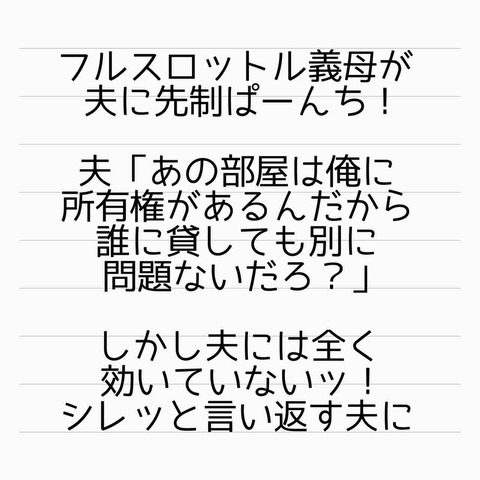 フルスロットル義母が
夫に先制ぱーんち！
夫「あの部屋は俺に
所有権があるんだから
誰に貸しても別に
問題ないだろ？」
しかし夫には全く
効いていないッ！
シレッと言い返す夫に